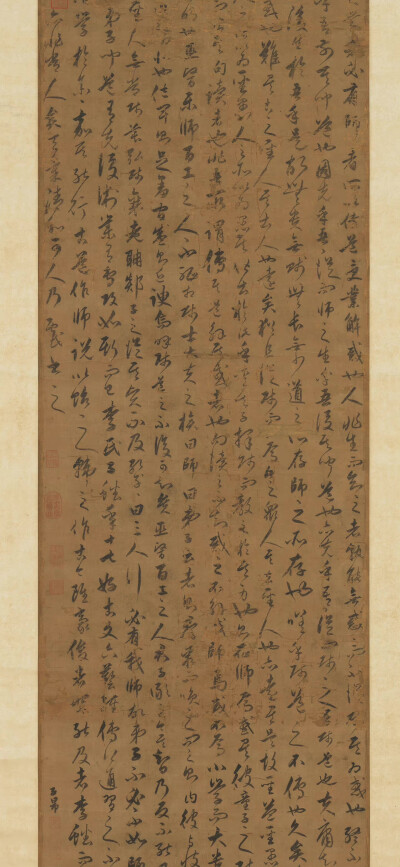 學者必有師師者所以傳道受業解惑也人非生而知之者孰能無惑惑而不從師其為惑也終不
乎吾前其聞道也固先乎吾吾從而師之生乎吾後其聞道也亦先乎吾吾從而師之吾師道也夫庸知
後生於吾乎是故無貴無賤無長無少道之所存師之所存也嗟乎師道之不傳也久矣
惑也難矣古之聖人其出人也遠矣猶且從師而問焉今之眾人其去聖人也亦遠矣是故聖益聖愚
以為聖愚人之所以為愚其皆出於此乎愛其子擇師而教之於其身也則恥師焉惑矣彼童子之
句讀者也非吾所謂傳其道解其惑者也句讀之不知惑之不解或師焉或不焉小學而大遺
也巫醫樂師百工之人不恥相師士大夫之族曰師曰弟子云者則群聚而笑之問之則曰彼與彼
道相似也位卑則足羞官盛則近諛嗚呼師道之不復可知矣巫醫百工之人君子不齒今其智乃反不能
聖人無常師孔子師萇弘師襄老聃郯子之徒其賢不及孔子曰三人行必有我師故弟子不必不如師
弟子聞道有先後術業有專攻如斯而已李氏子蟠年十七好古文六藝經傳皆通習之不
學於余余嘉其能行古道作師說以貽之韓之作古今雄豪俊能及者李蟠而
人矣可人乃書之
子昂